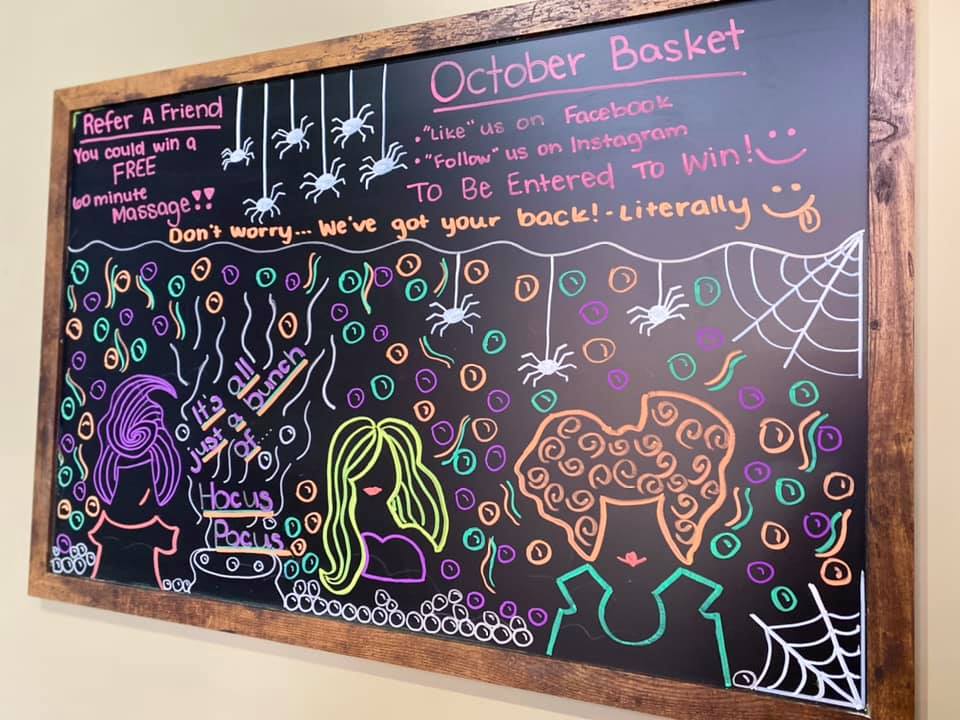 Refer A Friend
You could win a
FREE
60 minute
Massage!!
October Basket
• "Like" us on Facebook
• "Follow" us on Instagram
To Be Entered To Win!
Don't worry... We've got your back! - Literally
It's all
just a bunch
of...
Hocus
Pocus